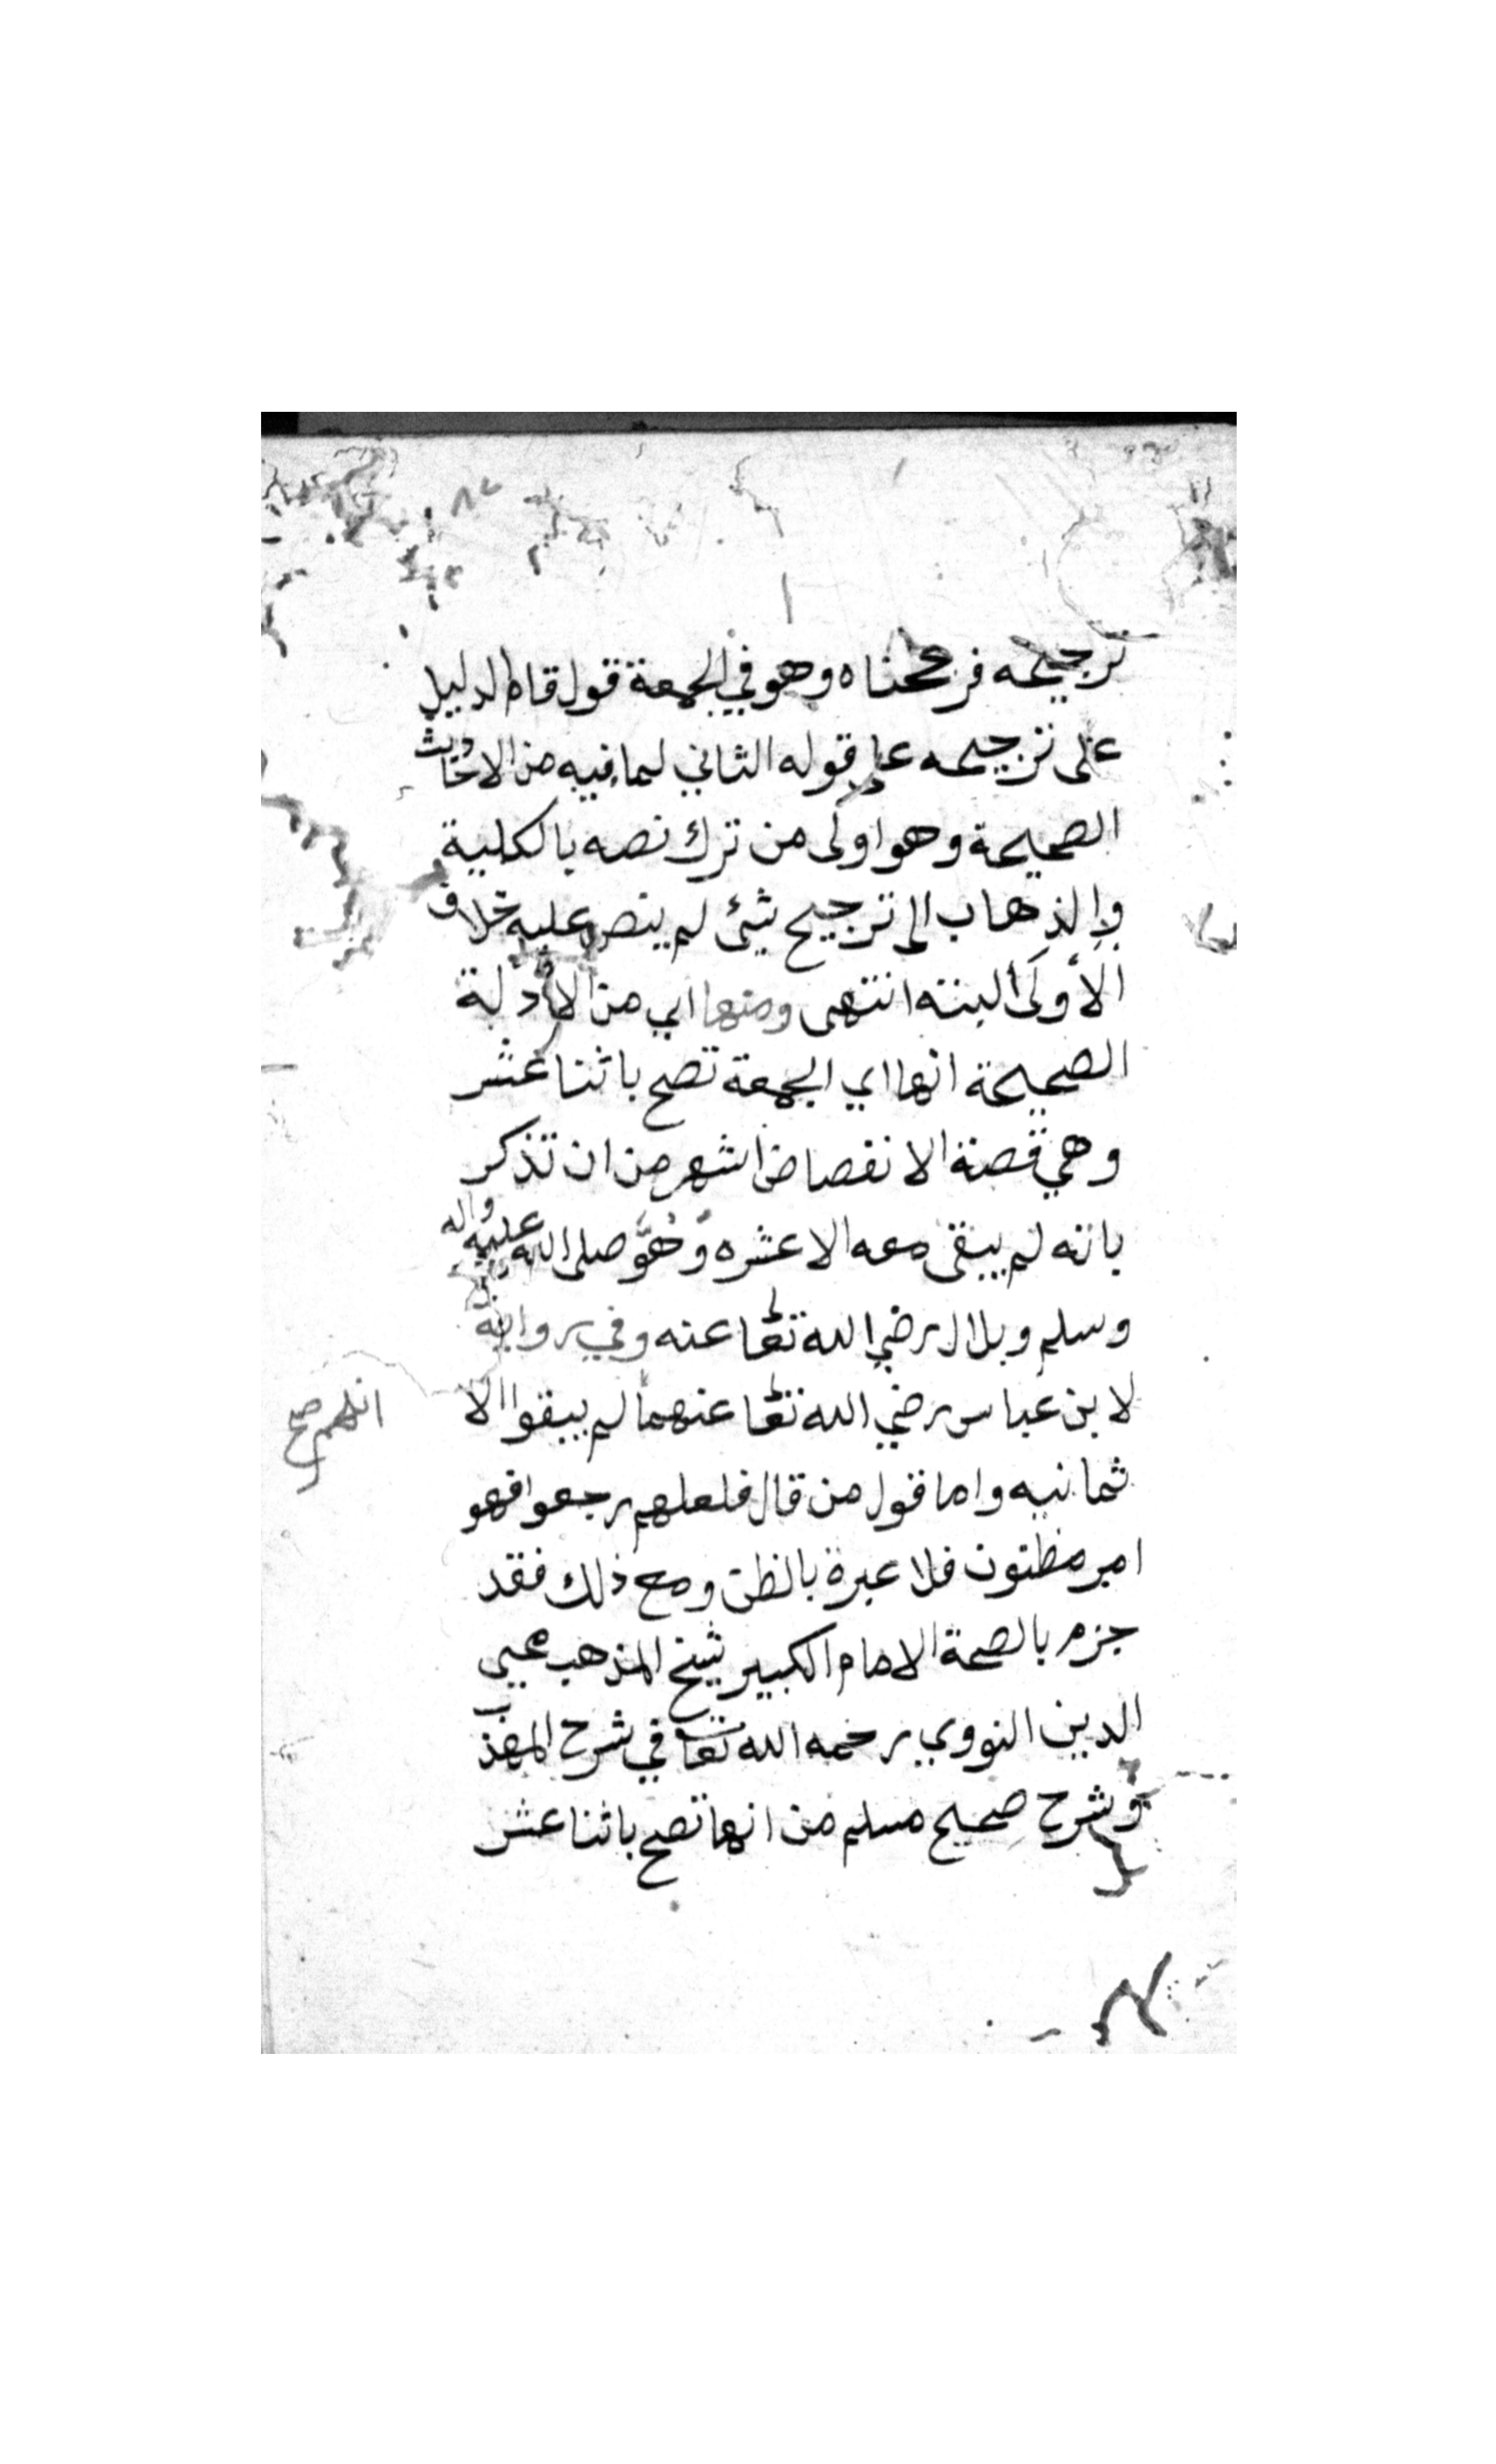 ترجيحه فرجحناه وهو في الجمعة قول قام الدليل
على ترجيحه على قوله الثاني لما فيه من الاحاديث
الصحيحة وهو اولى من ترك نصه بالكلية
والذهاب الى ترجيح شئ لم ينص عليه خلاف
الأولى ألبته انتهى ومنها اي من الادلة
الصحيحة انها اي الجمعة تصح باثنا عشر
وهي قصة الانفضاض اشهر من ان تذكر
بانه لم يبقى معه الا عشره وهو صلى الله عليه واله
وسلم وبلال رضي الله تعالى عنه وفي رواية
لابن عباس رضي الله تعالى عنهما لم يبقوا الا
انهم صح
ثمانيه واما قول من قال فلعلهم رجعوا فهو
امر مظنون فلا عبرة بالظن ومع ذلك فقد
جزم بالصحة الامام الكبير شيخ المذهب محيي
الدين النووي رحمه الله تعالى في شرح المهذب
وشرح صحيح مسلم من انها تصح باثنا عشر